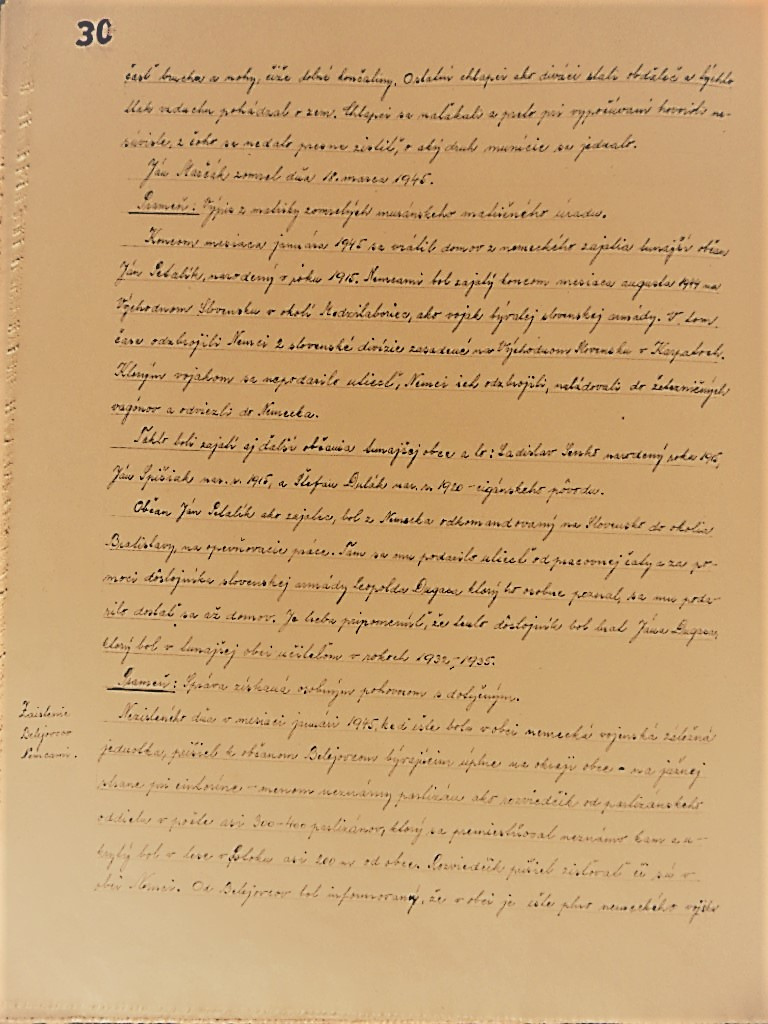 30
časť brucha a nohy, čiže dolné končatiny. Ostatní chlapci ako diváci stáli obďaleč a týchto
tlak vzduchu pohádzal o zem. Chlapci sa naľakali a preto pri vypočúvaní hovorili ne-
súvisle, z čoho sa nedalo presne zistiť, o aký druh munície sa jednalo.
Ján Marčák zomrel dňa 18. marca 1945.
Prameň: Výpis z matriky zomrelých muránskeho matričného úradu.
Koncom mesiaca januára 1945 sa vrátil domov z nemeckého zajatia tunajší občan
Ján Petalík, narodený v roku 1915. Nemcami bol zajatý koncom mesiaca augusta 1944 na
Východnom Slovensku v okolí Medzilaboriec, ako vojak bývalej slovenskej armády. V tom
čase odzbrojili Nemci 2 slovenské divízie zasadené na Východnom Slovensku v Karpatoch.
Ktorým vojakom sa nepodarilo utiecť, Nemci ich odzbrojili, naládovali do železničných
vagónov a odviezli do Nemecka.
Takto boli zajatí aj ďalší občania tunajšej obce a to: Ladislav narodený roku
Ján Spišiak nar. r. 1915, a Štefan Dulák nar. r. 1920 - cigánskeho pôvodu.
Občan Ján Petalík ako zajatec, bol z Nemecka odkomandovaný na Slovensko do okolia
Bratislavy, na opevňovacie práce. Tam sa mu podarilo utiecť od pracovnej čaty a za po-
moci dôstojníka slovenskej armády Leopolda ktorý ho osobne poznal, sa mu poda-
rilo dostať sa až domov. Je treba pripomenúť, že tento dôstojník bol brat Jána
ktorý bol v tunajšej obci učiteľom v rokoch 1932-1935.
Prameň: Správa získaná osobným pohovorom s dotyčným.
Zaistenie
Belejovcov
Nemcami.
Nezisteného dňa v mesiaci januári 1945, keď ešte bola v obci nemecká vojenská záložná
jednotka, prišiel k občanom Belejovcom bývajúcim úplne na okraji obce - na južnej
strane pri cintoríne - menom neznámy partizán ako rozviedčik od partizánskeho
oddielu v počte asi 300-400 partizánov, ktorý sa premiestňoval neznámo kam a u-
krytý bol v lese v asi 200 m od obce. Rozviedčik prišiel zisťovať či sú v
obci Nemci. Od Belejovcov bol informovaný, že v obci je ešte plno nemeckého vojska